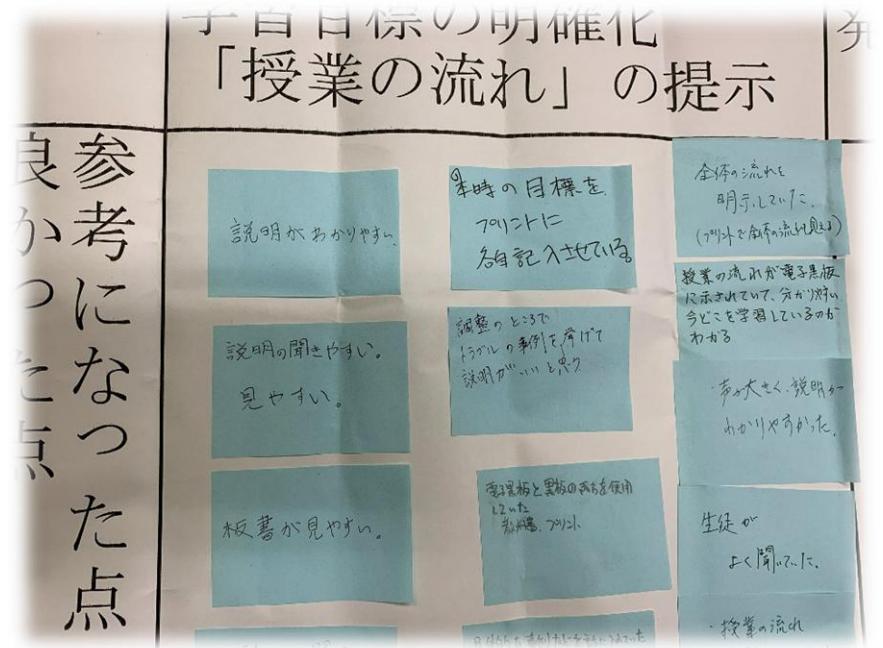 学習目標の明確化
「授業の流れ」の提示
発
参考になった点
良かった点
説明がわかりやすい。
説明の聞きやすい。
見やすい。
板書が見やすい。
本時の目標を
プリントに
各自記入させている。
調整のところで
トラブルの事例を挙げて
説明がいいと思う
電子黒板と黒板の両方を使用
していた
教科書、プリント
全体の流れを
明示していた。
(プリントで全体の流れ見える)
授業の流れが電子黒板
に示されていて、分かりやすい
今どこを学習しているのが
わかる
・声が大きく、説明が
わかりやすかった。
生徒が
よく聞いていた。
・授業の流れ